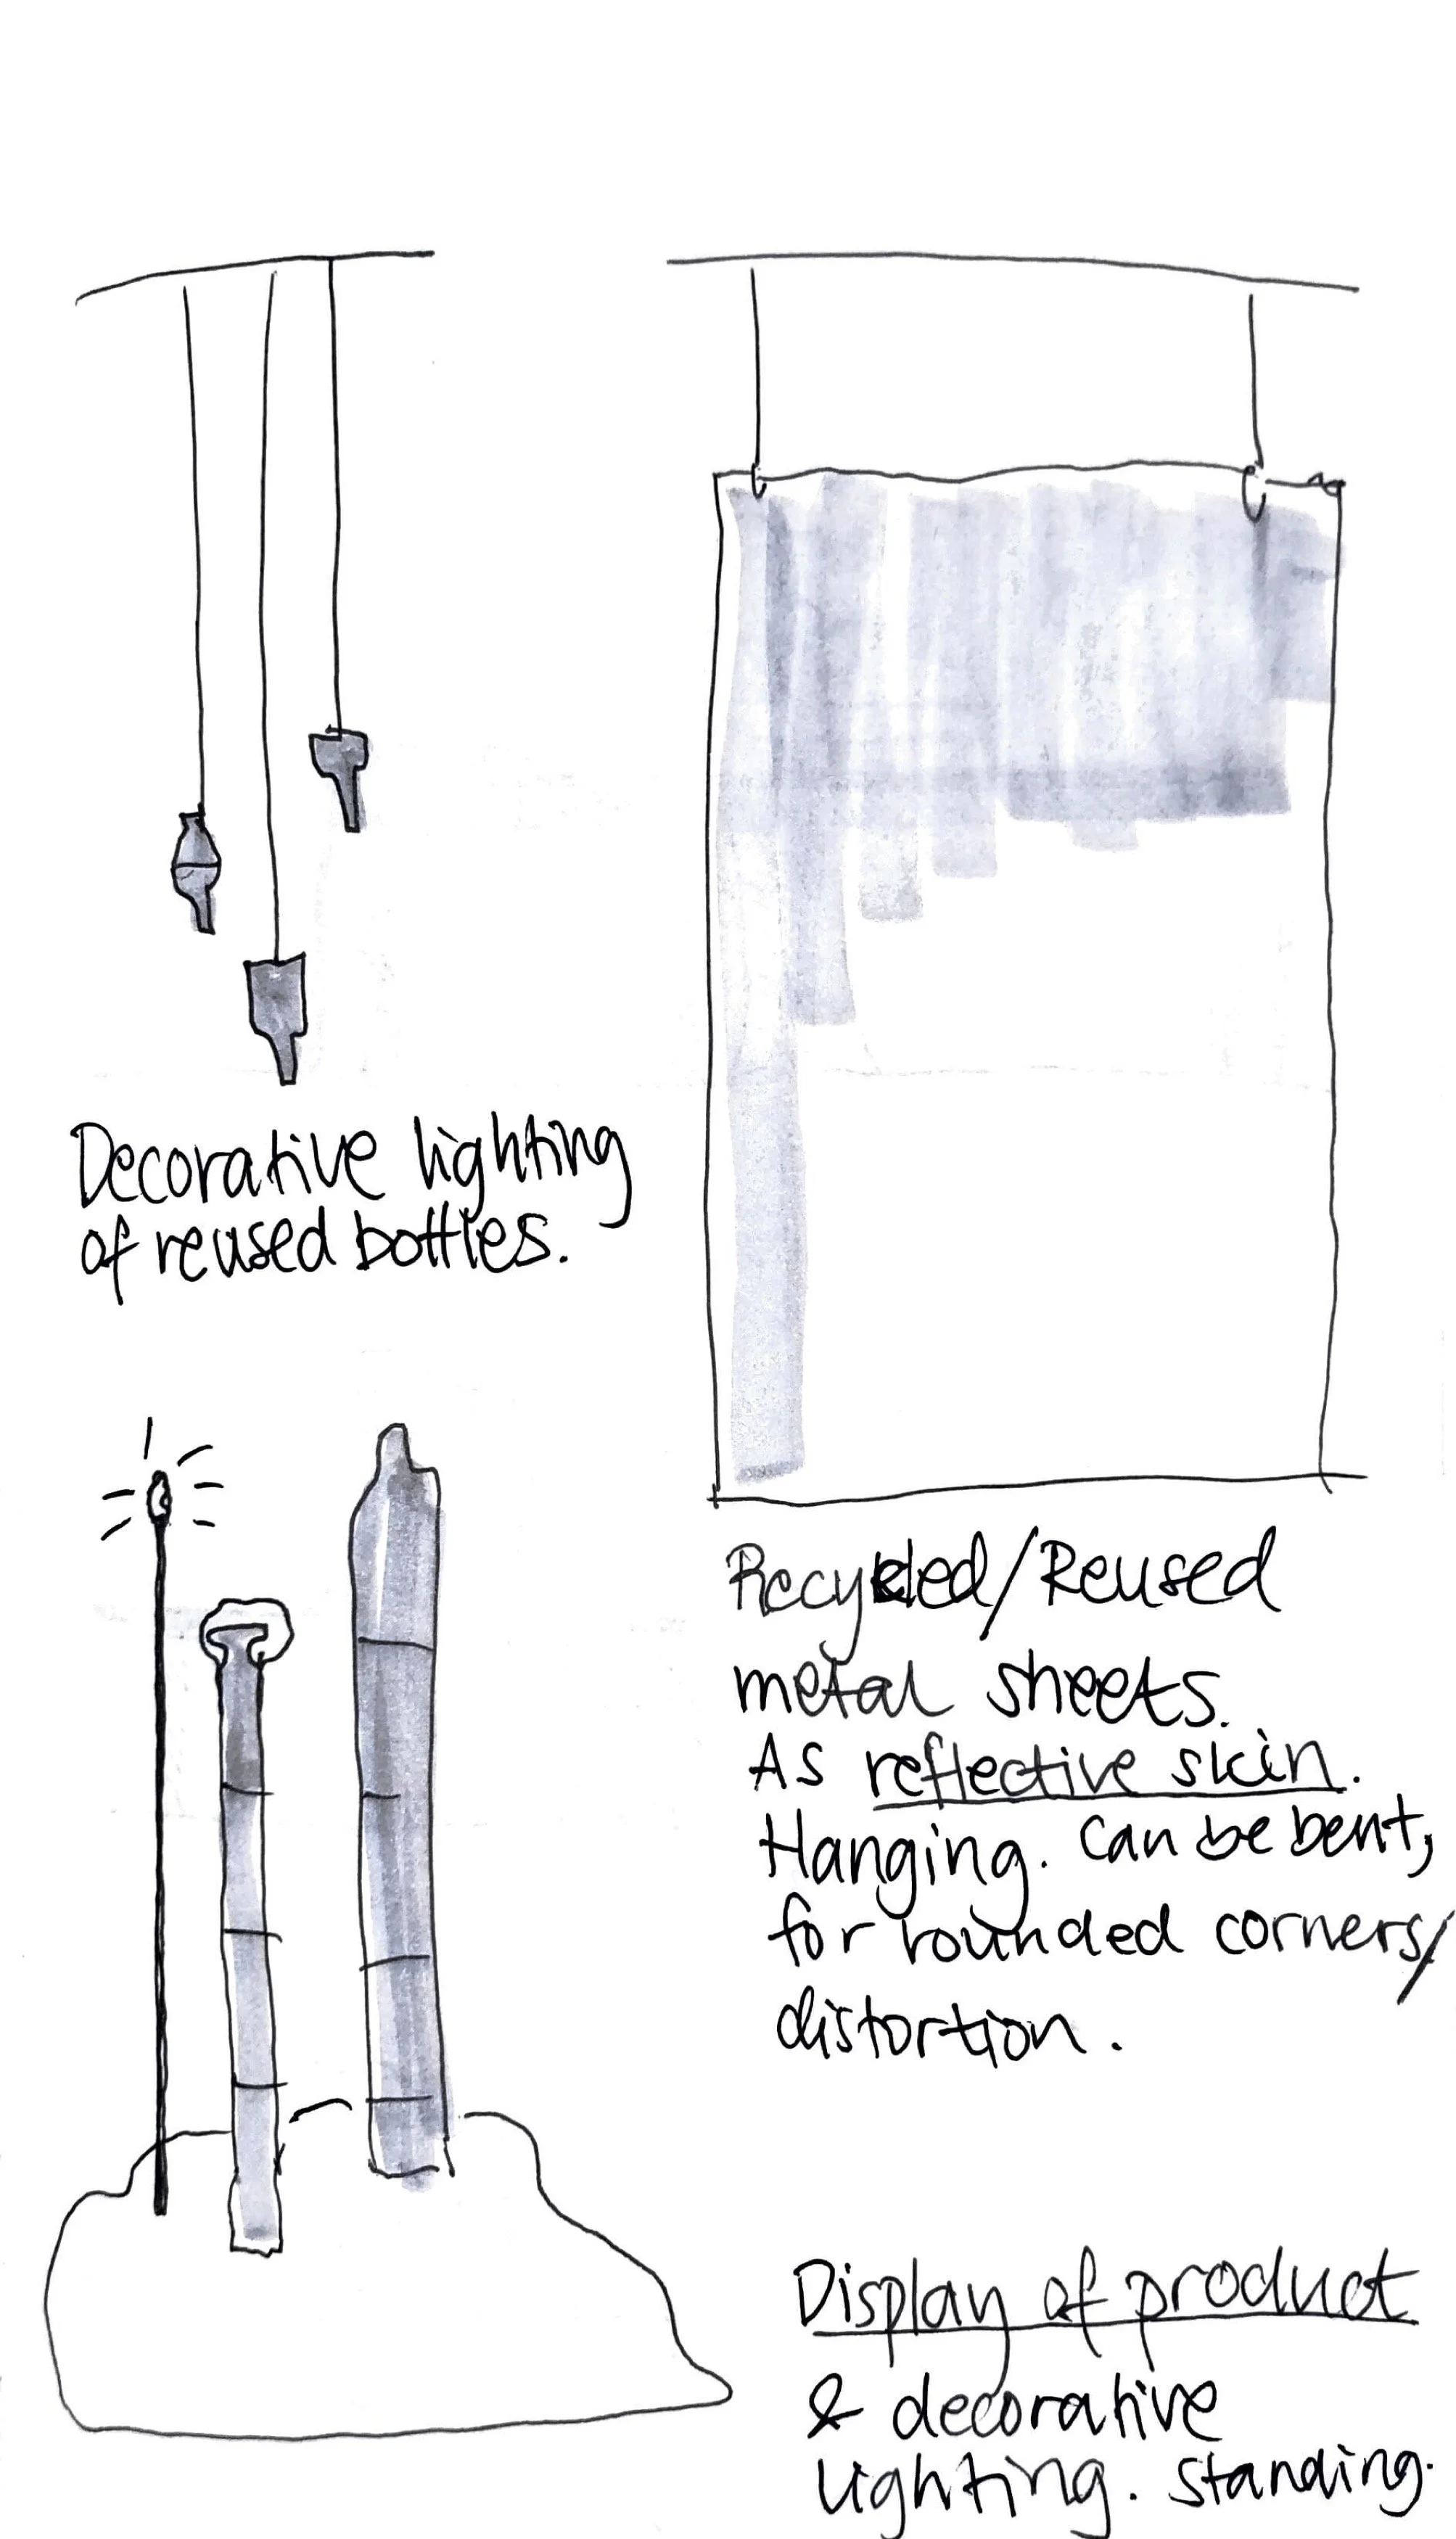 Decorative lighting
of reused bottles.
Recycled/Reused
metal sheets.
As reflective skin.
Hanging. Can be bent,
for rounded corners/
distortion.
Display of product
& decorative
lighting. Standing.